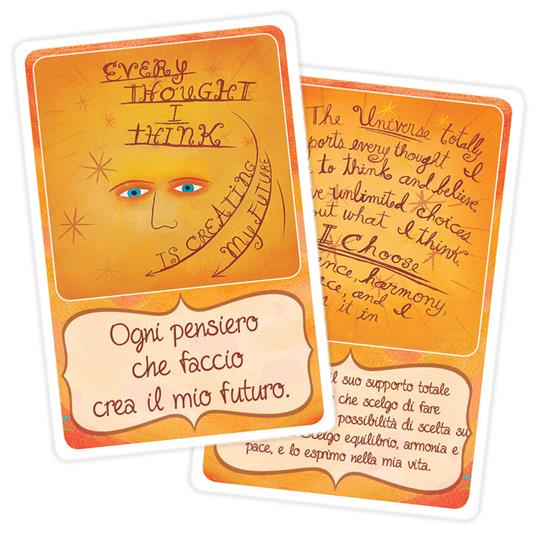 EVERY
THOUGHT
I
THINK
IS CREATING
MY FUTURE
Ogni pensiero
che faccio
crea il mio futuro.
The Universe totally
every thought I
to think and believe
unlimited choices
what I think.
I Choose
harmony,
and I
it in
il suo supporto totale
che scelgo di fare
possibilità di scelta su
scelgo equilibrio, armonia e
pace, e lo esprimo nella mia vita.